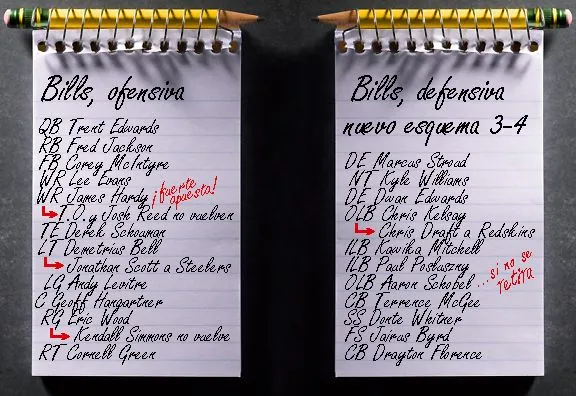 Bills, ofensiva
QB Trent Edwards
RB Fred Jackson
FB Corey McIntyre
WR Lee Evans
WR James Hardy ¡fuerte apuesta!
T.O. y Josh Reed no vuelven
TE Derek Schouman
LT Demetrius Bell
Jonathan Scott a Steelers
LG Andy Levitre
C Geoff Hangartner
RG Eric Wood
Kendall Simmons no vuelve
RT Cornell Green
Bills, defensiva
nuevo esquema 3-4
DE Marcus Stroud
NT Kyle Williams
DE Dwan Edwards
OLB Chris Kelsay
Chris Draft a Redskins
ILB Kawika Mitchell
ILB Paul Posluszny
OLB Aaron Schobel ...si no se retira
CB Terrence McGee
SS Donte Whitner
FS Jairus Byrd
CB Drayton Florence